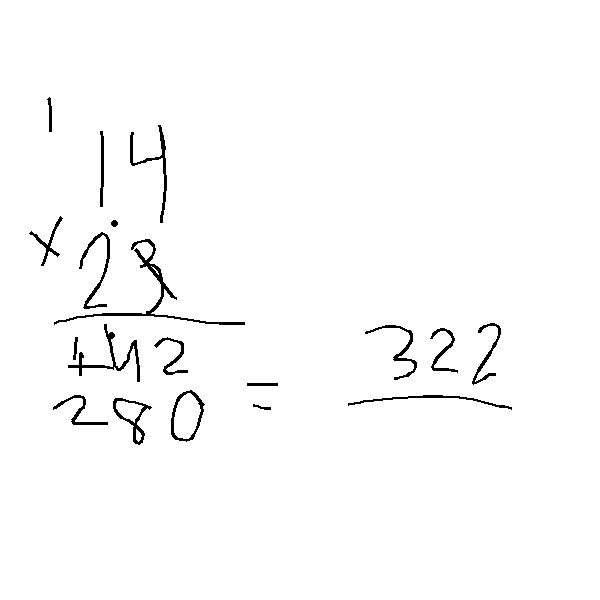 1
14
x 23
+42
280 = 322